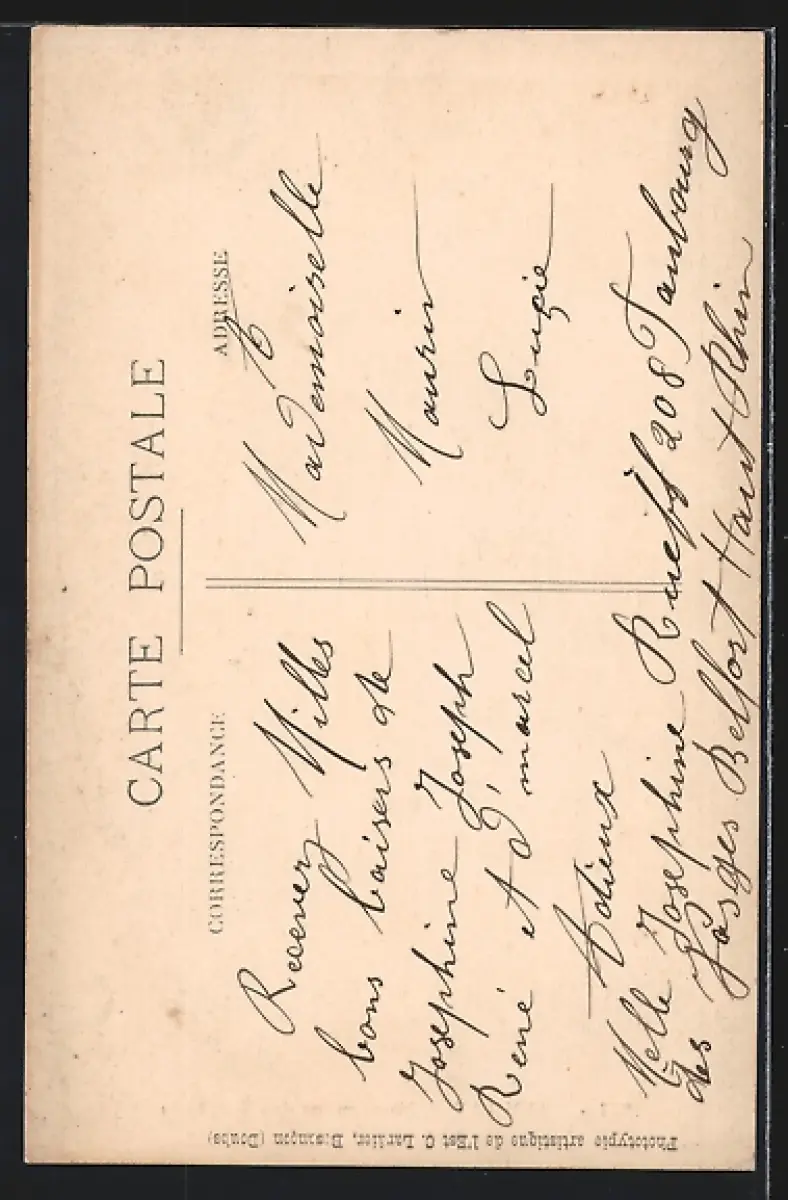 CARTE POSTALE
CORRESPONDANCE
Recevez Milles
bons baisers de
Joséphine Joseph
René et d'marcel
Adieux
Melle Josephine Rueff 208 Faubourg
des Vosges Belfort Haut Rhin
ADRESSE
A
Mademoiselle
Maurin
Lucie
Phototypie artistique de l'Est C. Lardier, Besançon (Doubs)